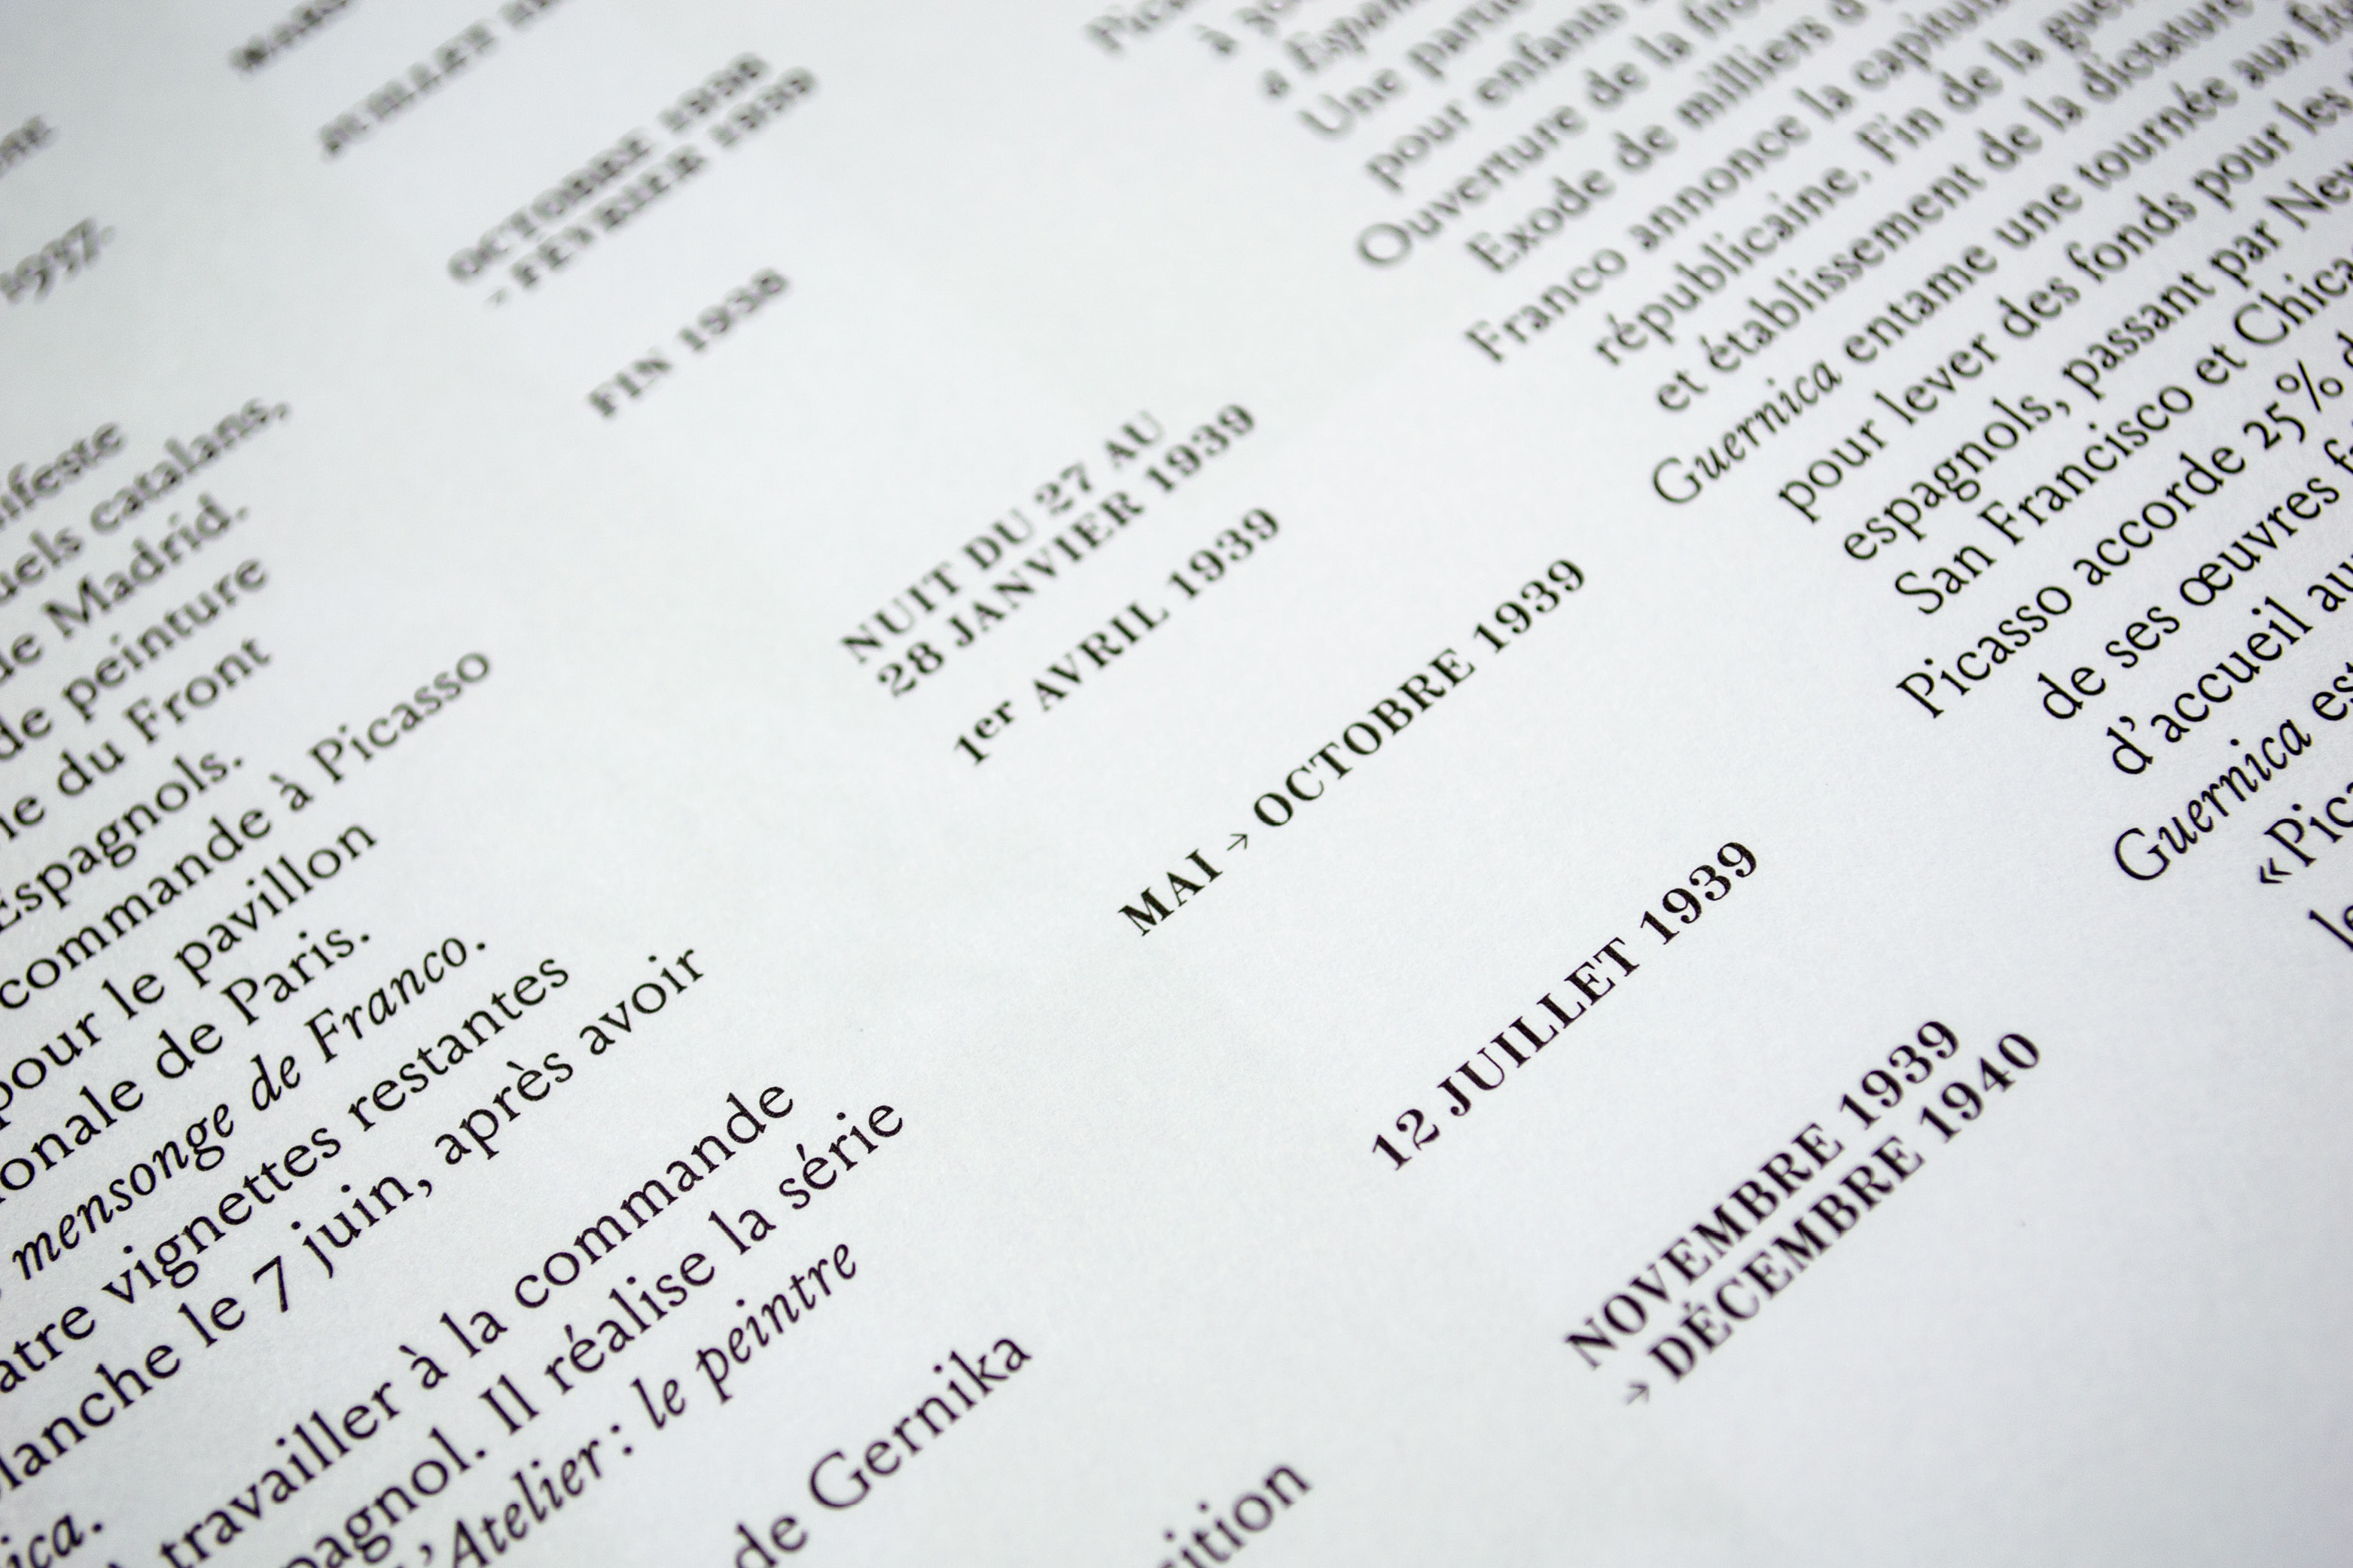 1937.
catalans,
de Madrid.
de peinture
du Front
Espagnols.
commande à Picasso
pour le pavillon
de Paris.
mensonge de Franco.
vignettes restantes
le 7 juin, après avoir
travailler à la commande
Il réalise la série
Atelier : le peintre
de Gernika
OCTOBRE 1938
- FÉVRIER 1939
FIN 1938
NUIT DU 27 AU
28 JANVIER 1939
1er AVRIL 1939
MAI → OCTOBRE 1939
12 JUILLET 1939
NOVEMBRE 1939
→ DÉCEMBRE 1940
Une partie
pour enfants
Ouverture de la
Exode de milliers
Franco annonce la
républicaine. Fin de la
et établissement de la dictature
Guernica entame une tournée aux
pour lever des fonds pour les
espagnols, passant par
San Francisco et
Picasso accorde 25 %
de ses œuvres
d'accueil
Guernica